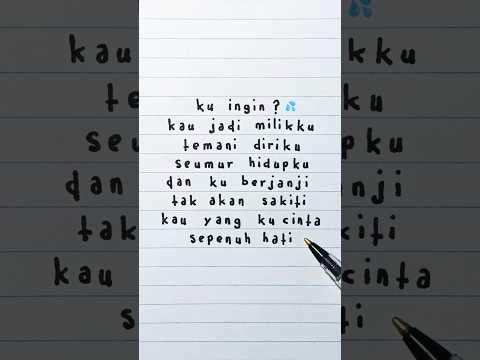 ku ingin ? 💦
kau jadi milikku
temani diriku
seumur hidupku
dan ku berjanji
tak akan sakiti
kau yang ku cinta
sepenuh hati